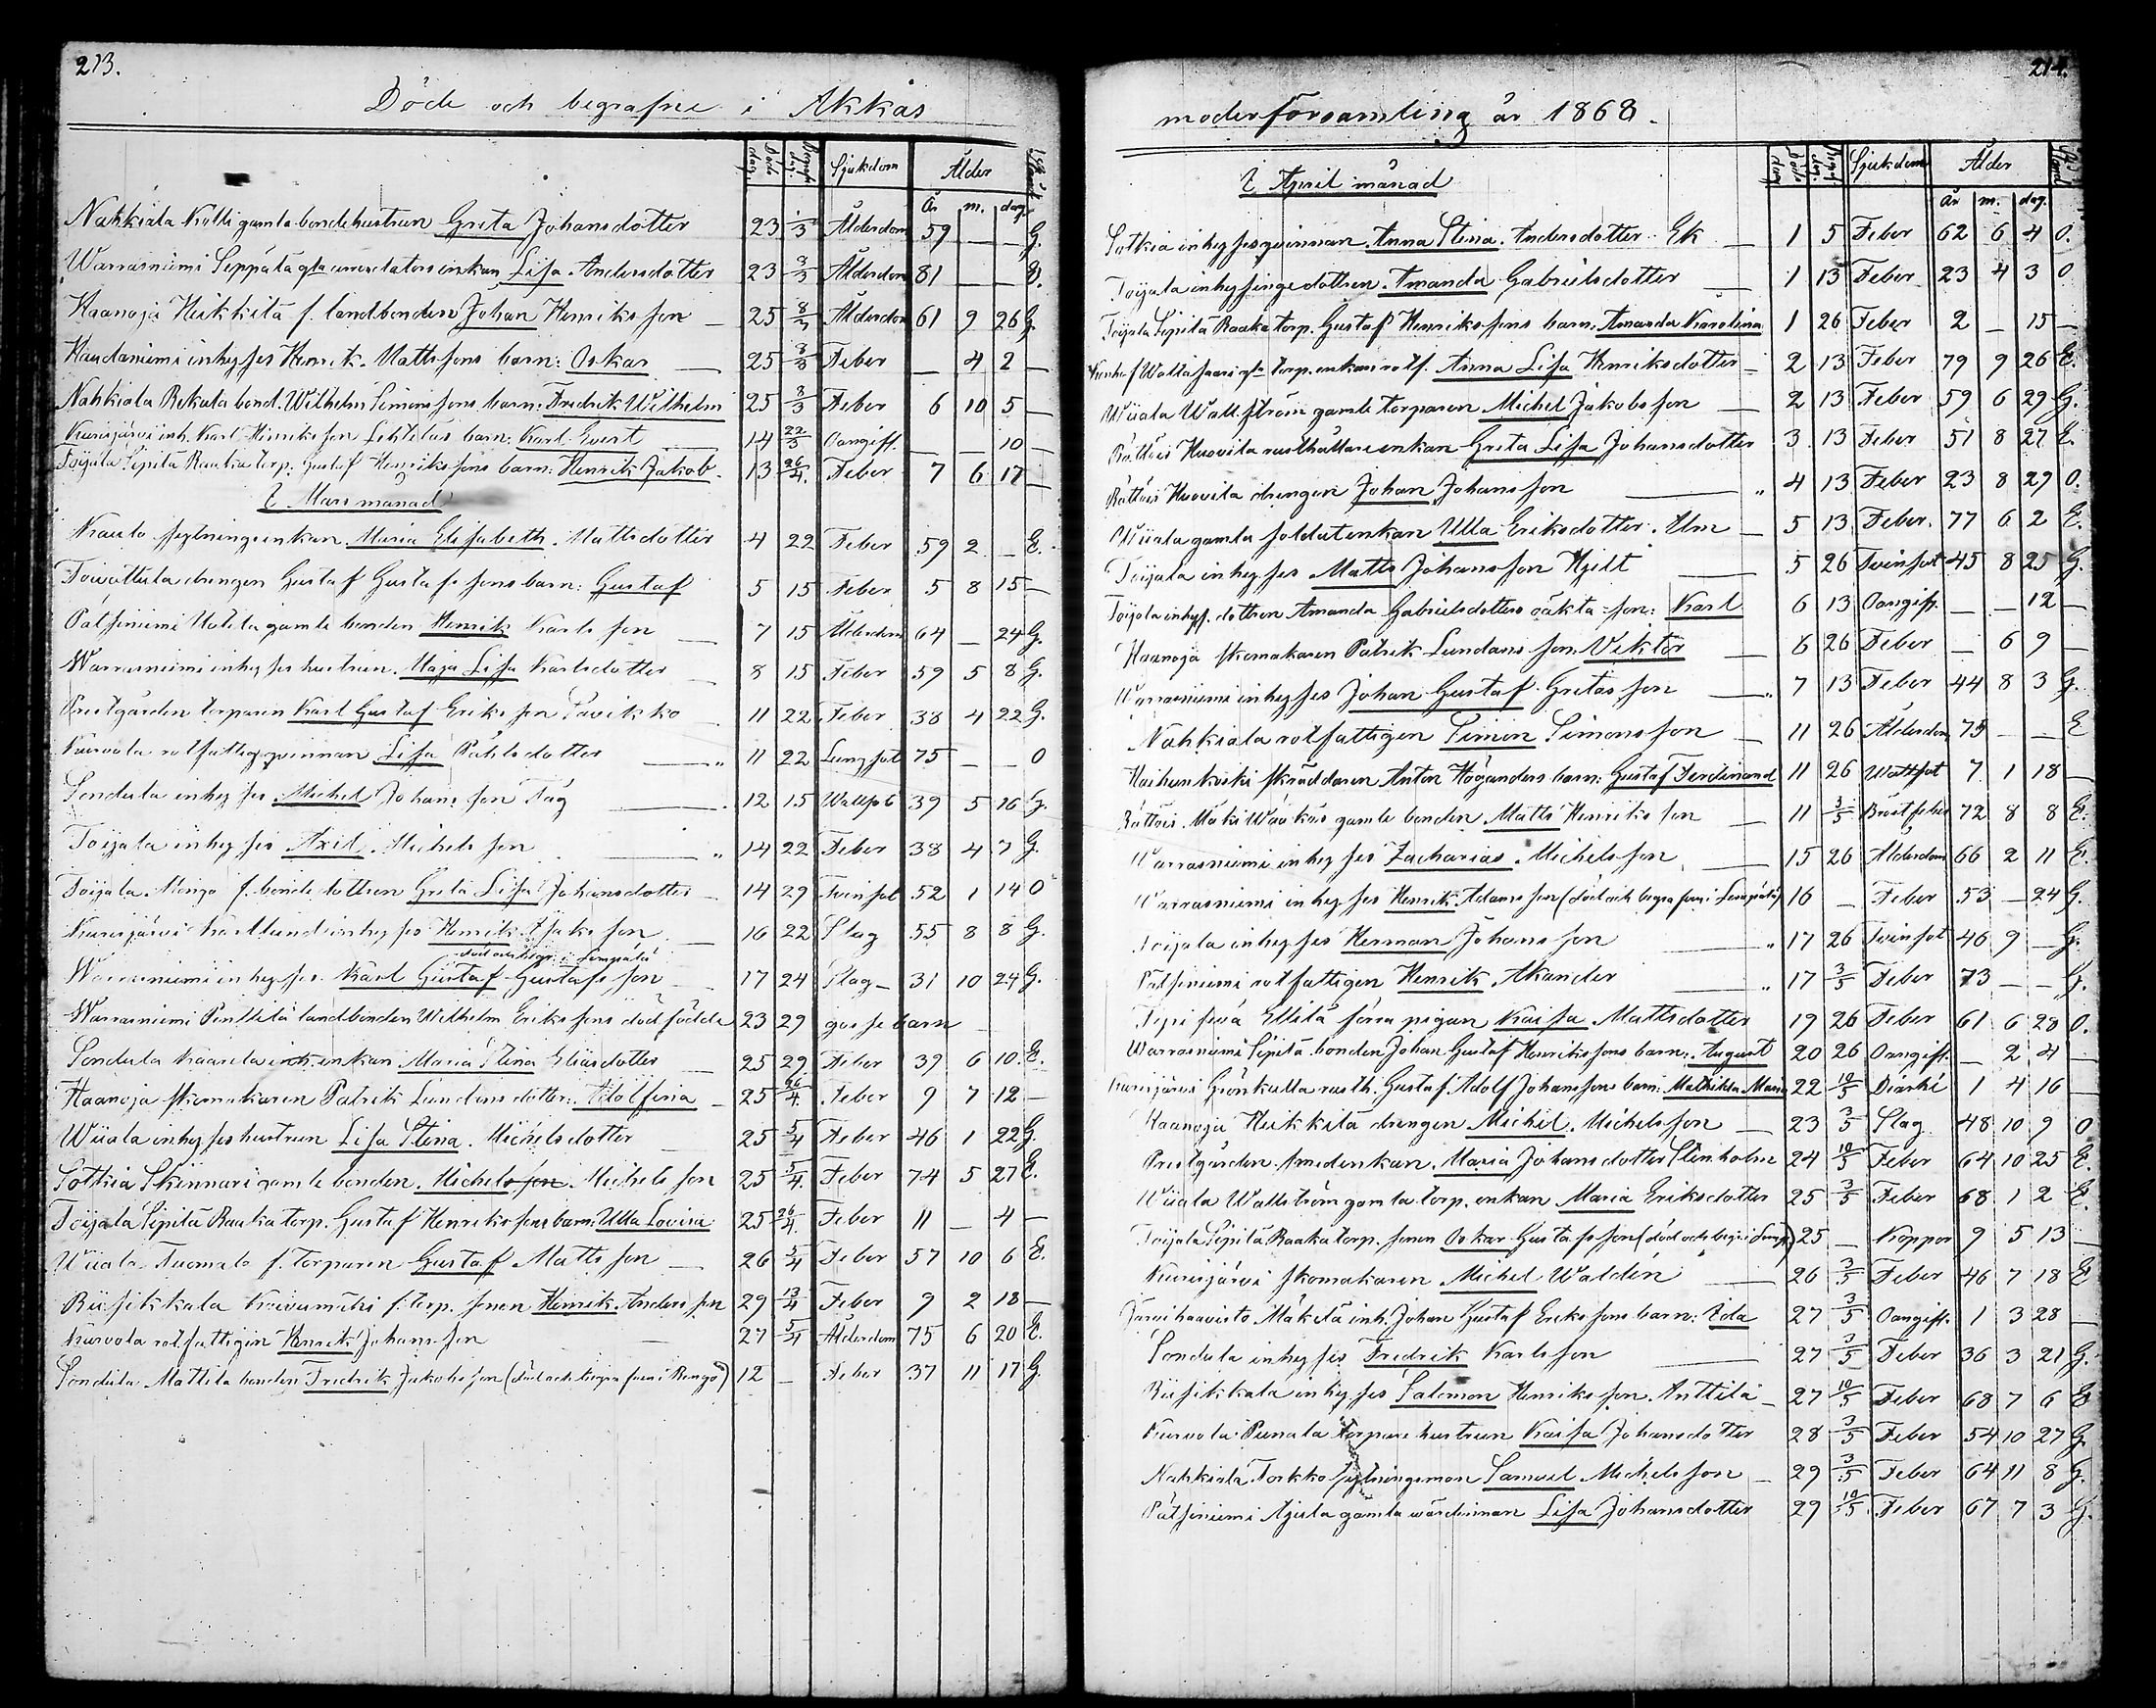 213.
Döde och begrafne i Akkas
Döds dag. Begrafn. dag. Sjukdom Ålder
År m. dag.
Nahkiala Kölli gamla bondehustrun Greta Johansdotter 23 1/3 Ålderdom 59 — — G.
Warrasniemi Seppälä gla arrendators enkan Lisa Andersdotter 23 8/3 Ålderdom 81 — — E.
Haanoja Heikkilä f. landbonden Johan Henriksson — 25 8/3 Ålderdom 61 9 26 G.
Haudaniemi inhyses Henrik Mattssons barn: Oskar — 25 8/3 Feber — 4 2 —
Nahkiala Rekola bond. Wilhelm Simonssons barn: Fredrik Wilhelm 25 8/3 Feber 6 10 5 —
Kurisjärvi inh. Karl Henriksson Lehtiläs barn: Karl Evert 14 22/3 Oangiff. — — 10 —
Toijala Sipilä Raaka torp. Gustaf Henrikssons barn: Henrik Jakob 13 26/4 Feber 7 6 17 —
I Mars månad
Kauto sytningsenkan Maria Elisabeth Mattsdotter 4 22 Feber 59 2 — E.
Toivottula drengen Gustaf Gustafssons barn: Gustaf 5 15 Feber 5 8 15 —
Pätsiniemi Uotila gamle bonden Henrik Karlsson — 7 15 Ålderdom 64 — 24 G.
Warrasniemi inhyses hustrun Maja Lisa Karlsdotter — 8 15 Feber 59 5 8 G.
Prestgården torparen Karl Gustaf Eriksson Pavikko 11 22 Feber 38 4 22 G.
Kurvola rotfattigqvinnan Lisa Påhlsdotter — 11 22 Lungsot 75 — — O
Sondula inhyses Michel Johansson Tåg — 12 15 Wattsot 39 5 16 G.
Toijala inhyses Axel Michelsson — 14 22 Feber 38 4 7 G.
Toijala Mengo f. bondedottren Greta Lisa Johansdotter — 14 29 Tvinsot 52 1 14 O
Kurisjärvi Karllund inhyses Henrik Isaksson — 16 22 Slag 55 8 8 G.
död och begr. i Lempälä
Warrasniemi inhyses Karl Gustaf Gustafsson — 17 24 Slag — 31 10 24 G.
Warrasniemi Penttilä landbonden Wilhelm Erikssons dödfödde 23 29 gossebarn
Sondula Kaarela inh. enkan Maria Stina Eliasdotter 25 29 Feber 39 6 10 E.
Haanoja skomakaren Patrik Lundens dotter: Adolfina — 25 26/4 Feber 9 7 12 —
Wiiala inhyses hustrun Lisa Stina Michelsdotter 25 5/4 Feber 46 1 22 G.
Sotkia Skinnari gamle bonden Michelsson Michelsson 25 5/4 Feber 74 5 27 E.
Toijala Sipilä Raaka torp. Gustaf Henrikssons barn: Ulla Lovisa 25 26/4 Feber 11 — 4 —
Wiiala Tuomala f. torparen Gustaf Mattsson — 26 5/4 Feber 57 10 6 E.
Riisikkala Koivumäki f. torp. sonen Henrik Andersson 29 13/4 Feber 9 2 18 —
Kurvola rotfattigen Henrik Johansson 27 5/4 Ålderdom 75 6 20 E.
Sondula Mattila bonden Fredrik Jakobsson (död och begrafven i Rengo) 12 — Feber 37 11 17 G.
214.
moderförsamling år 1868.
I April månad
Döds dag Begr. dag. Sjukdom Ålder
År m. dag.
Sotkia inhysesqvinnan Anna Stina Andersdotter Ek — 1 5 Feber 62 6 4 O.
Toijala inhysingedottren Amanda Gabrielsdotter — 1 13 Feber 23 4 3 O
Toijala Sipilä Raaka torp. Gustaf Henrikssons barn: Amanda Karolina 1 26 Feber 2 — 15 —
Wallasaari gla torp. enkan rotf. Anna Lisa Henriksdotter — 2 13 Feber 79 9 26 E.
Wiiala Wallström gamle torparen Michel Jakobsson — 2 13 Feber 59 6 29 G.
Rättöis Huovila rusthållareenkan Greta Lisa Johansdotter 3 13 Feber 51 8 27 E.
Rättöis Huovila drengen Johan Johansson — 4 13 Feber 23 8 29 O.
Wiiala gamla soldatenkan Ulla Eriksdotter Alm — 5 13 Feber 77 6 2 E.
Toijala inhyses Matts Johansson Hjelt — 5 26 Tvinsot 45 8 25 G.
Toijala inhys. dottren Amanda Gabrielsdotters oäkta son: Karl 6 13 Oangiff. — — 12 —
Haanoja skomakaren Patrik Lundens son Viktor — 6 26 Feber — 6 9 —
Warrasniemi inhyses Johan Gustaf Gretasson — 7 13 Feber 44 8 3 G.
Nahkiala rotfattigen Simon Simonsson — 11 26 Ålderdom 75 — — E
Haihunkoski skräddaren Anton Höganders barn: Gustaf Ferdinand 11 26 Wattsot 7 1 18 —
Rättöis Mäki Wääkäs gamle bonden Matts Henriksson — 11 3/5 Bröstfeber 72 8 8 E.
Warrasniemi inhyses Zacharias Michelsson — 15 26 Ålderdom 66 2 11 E.
Warrasniemi inhyses Henrik Adamsson (död och begrafven i Lempälä) 16 — Feber 53 — 24 G.
Toijala inhyses Herman Johansson — 17 26 Tvinsot 46 9 — G.
Pätsiniemi rotfattigen Henrik Akander — 17 3/5 Feber 73 — — G.
Sipi Ellilä förra pigan Kaisa Mattsdotter 19 26 Feber 61 6 28 O.
Warrasniemi Sipilä bonden Johan Gustaf Henrikssons barn: August 20 26 Oangiff. — 2 4 —
Kurisjärvi Grönkulla rusth. Gustaf Adolf Johanssons barn: Mathilda Maria 22 10/5 Diarhé 1 4 16 —
Haanoja Heikkilä drengen Michel Michelsson — 23 3/5 Slag 48 10 9 O
Prestgården smedenkan Maria Johansdotter Stenholm 24 10/5 Feber 64 10 25 E.
Wiiala Wallström gamla torp. enkan Maria Eriksdotter 25 3/5 Feber 68 1 2 E.
Toijala Sipilä Raaka torp. sonen Oskar Gustafsson (död och begr. i Lemp.) 25 — Koppor 9 5 13 —
Kurisjärvi skomakaren Michel Waldén — 26 3/5 Feber 46 7 18 E
Järvihaavisto Mäkelä inh. Johan Gustaf Erikssons barn: Ida 27 3/5 Oangiff. 1 3 28 —
Sondula inhyses Fredrik Karlsson — 27 3/5 Feber 36 3 21 G.
Riisikkala inhyses Salomon Henriksson Anttila — 27 10/5 Feber 68 7 6 E
Kurvola Punala torpare hustrun Kaisa Johansdotter 28 3/5 Feber 54 10 27 G.
Nahkiala Torkko sytningsman Samuel Michelsson — 29 3/5 Feber 64 11 8 G.
Pätsiniemi Äijälä gamla wärdinnan Lisa Johansdotter 29 10/5 Feber 67 7 3 G.